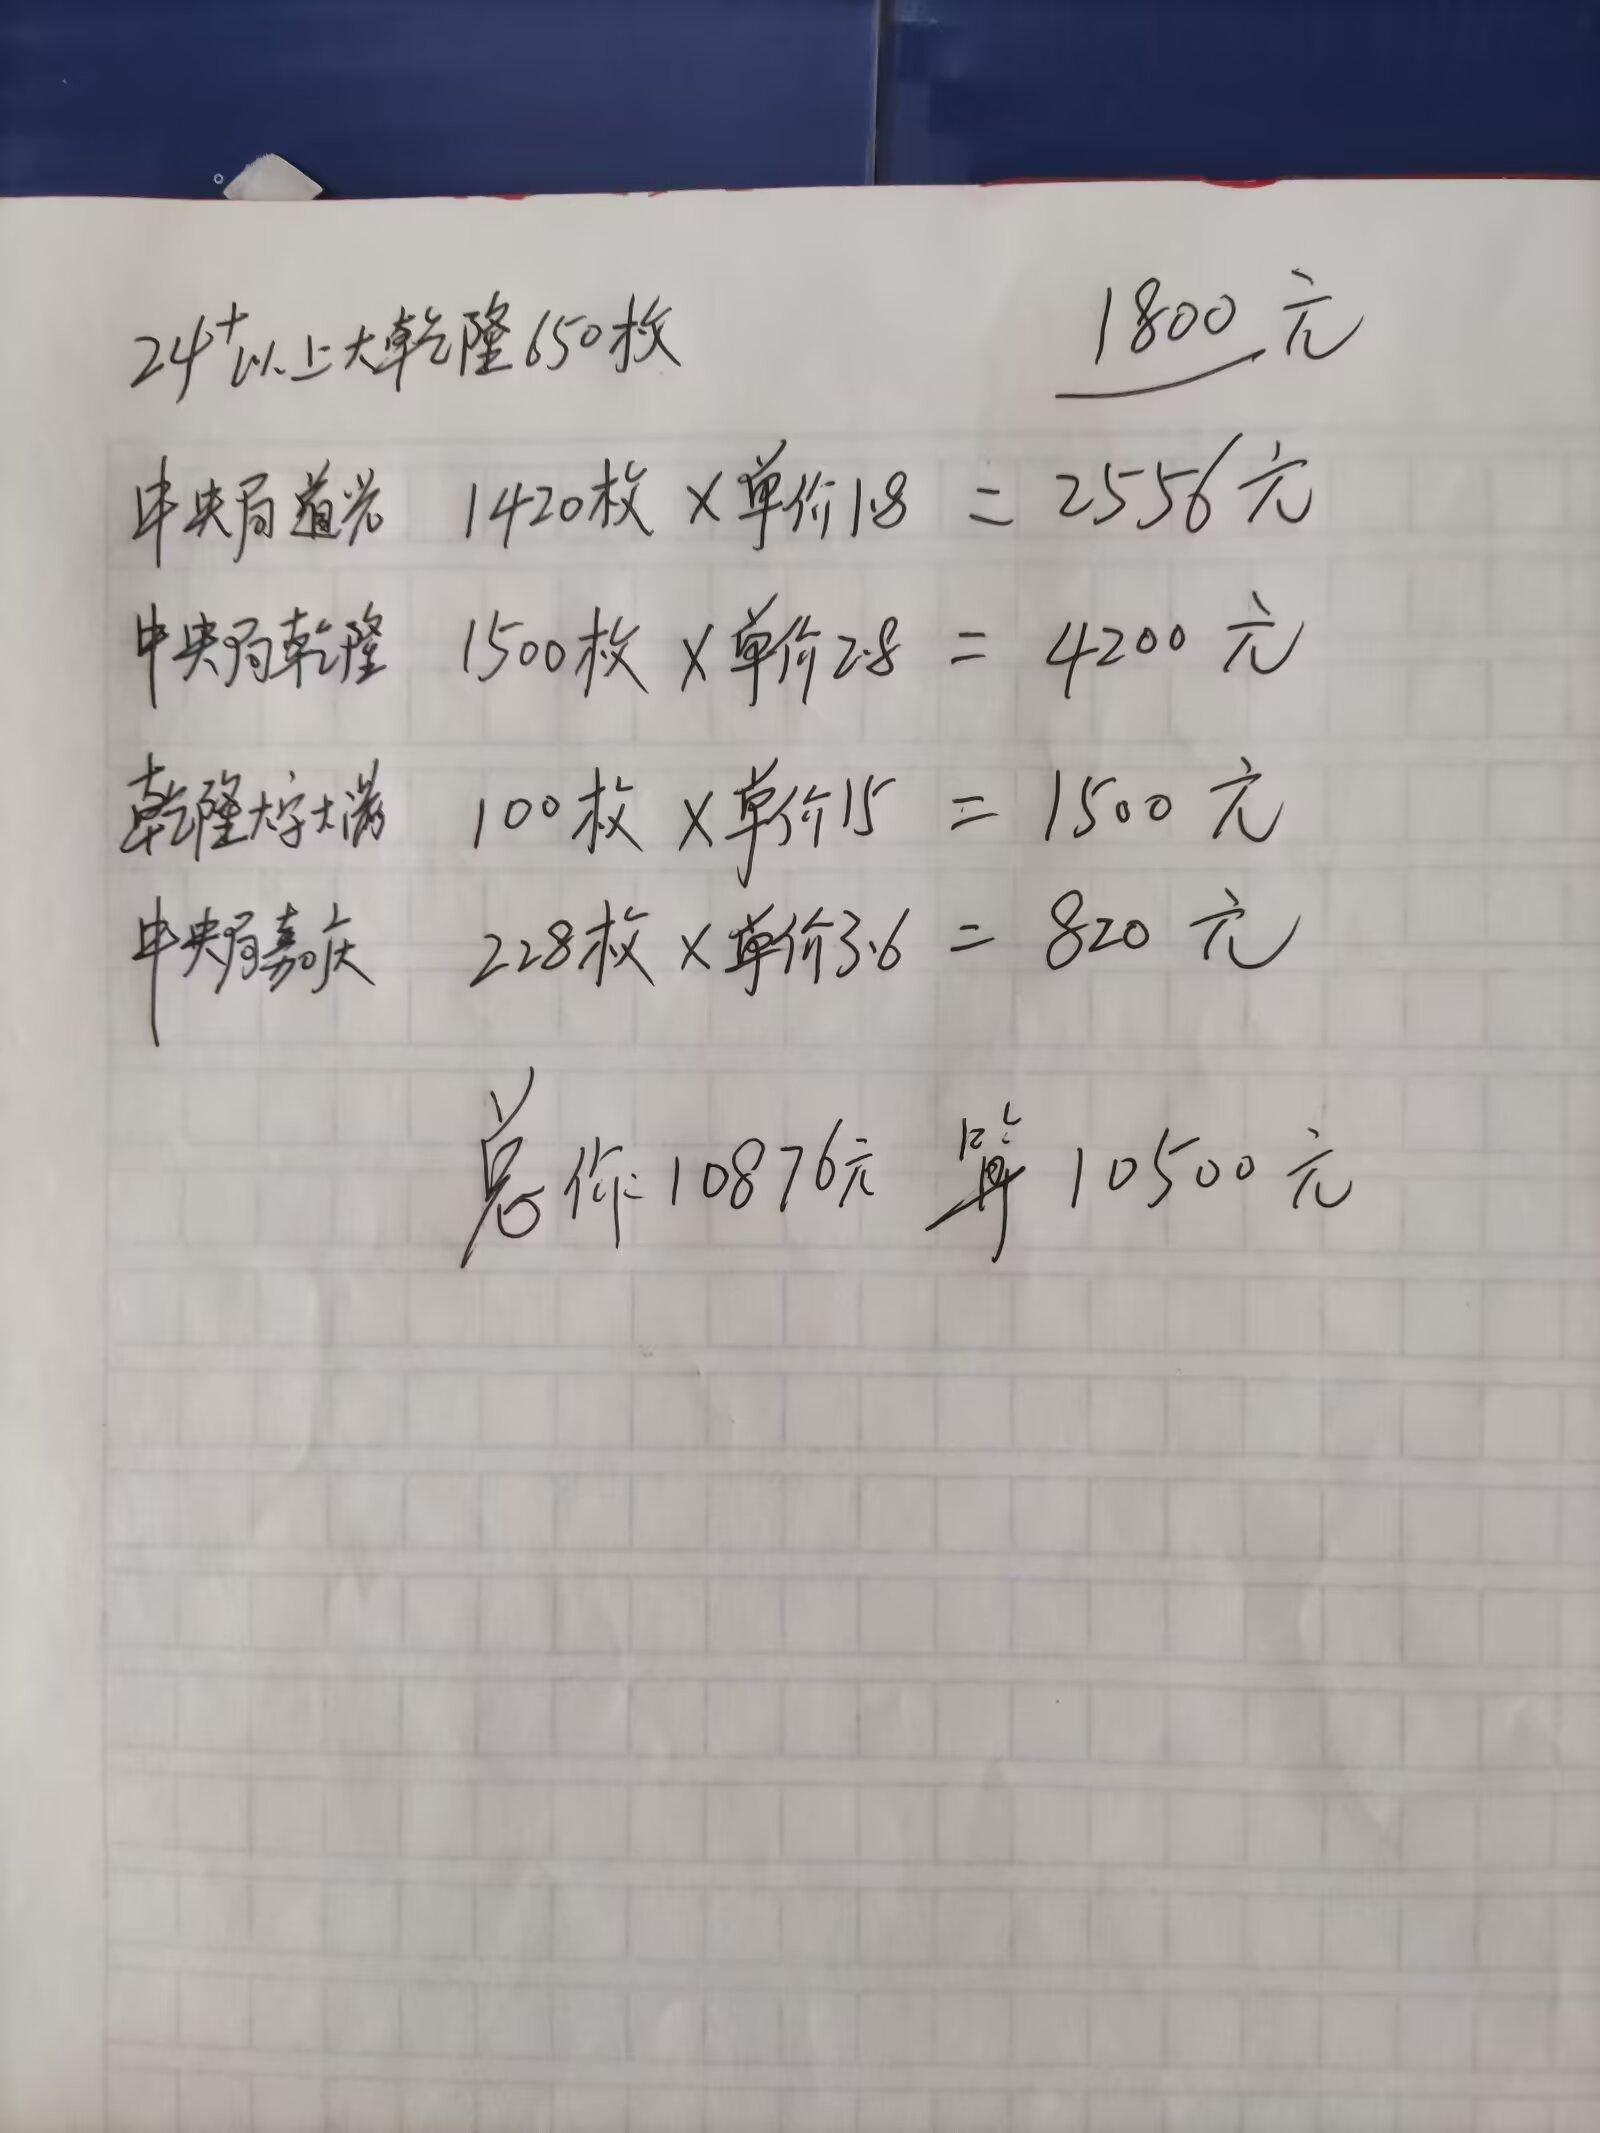 24+以上大乾隆650枚 1800元
中央局道光 1420枚×单价1.8=2556元
中央局乾隆 1500枚×单价2.8=4200元
乾隆大字大满 100枚×单价15=1500元
中央局嘉庆 228枚×单价3.6=820元
总价:10876元 算10500元